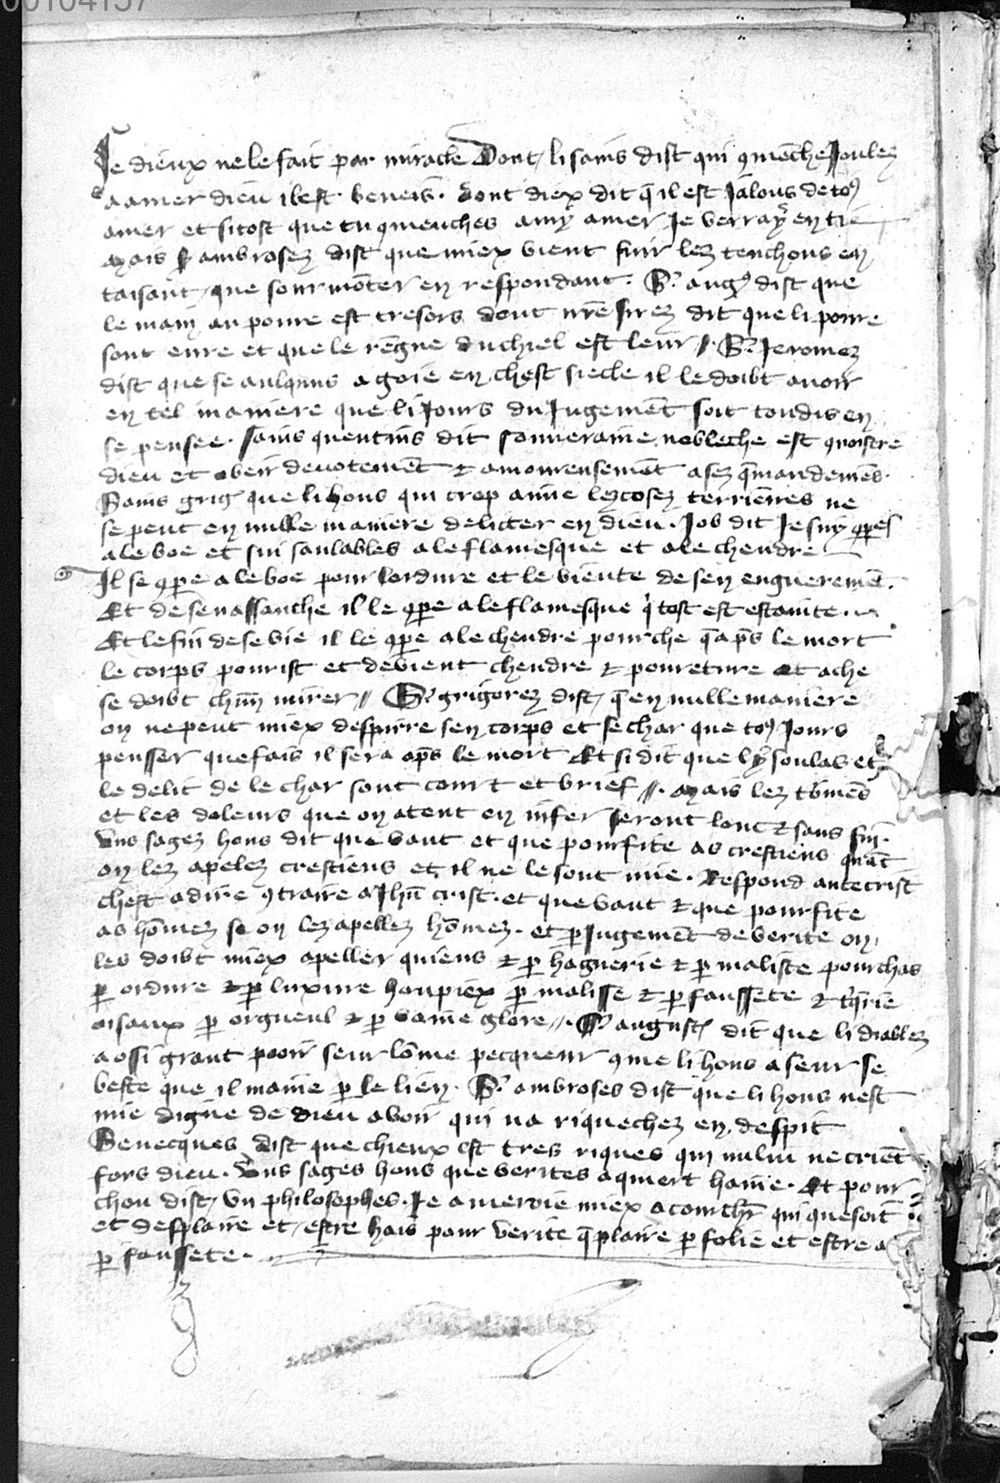 00104157
se dieux ne le fait par miracle Dont li sains dist qui 9menche Joulez
a amer dieu il est beneis . dont diex dit q̃ il est Jalous de to9
amer et si tost que tu 9menches a my amer Je verray en ti
Mais s ambrosez dist que miex vient fuir lez tenchons en
taisant / que sourmõter en respondant . S. aug9 dist que
le main au poure est tresors dont nr̃e sirez dit que li poure
sont eure et que le rẽgne du chiel est leur // S. Jeromez
dist que se aulquns a goie en chest siecle il le doibt avoir
en tel maniere que li Jours du Jugemẽt soit toudis en
se pensee . Sains quentins dit souveraine nobleche est 9noistre
dieu et obeir devotemẽt & amoureusemẽt a sez q̃mandemẽs .
Sains grig que li hons qui trop aime lez cosez terriẽnes ne
se peut en nulle maniere deliter en dieu . Job dit Je suy 9pes
a le boe et sui sanlables a le flamesque et a le chendre
Il se 9pe a le boe pour lordure et le viente de sen engueremẽt .
Et de se nassanche il le 9pe a le flamesque q̃ tost est estainte .
Et le fin de se vie il le 9pe a le chendre pour che q̃ ap̃s le mort
le corps pourist et devient chendre & poureture et a che
se doibt chũn mirer // S. grigorez dist q̃ en nulle maniere
on ne peut miex despiire sen corps et se char que to9 Jours
pensser que fais il sera ap̃s le mort Et si dit que ly soulas et
le delit de le char sont court et brief // . Mais lez tõmẽs
et les doleurs que on atent en infer seront lonc & sans fin .
Uns sagez hons dit que vaut et que pourfite as crestiens quãt
on lez apelez crestiens et il ne le sont mie . Respond antecrist
chest a dire 9traire a Jhũ crist . et que vaut & que pourfite
as hõmez se on lez apellez hõmez . et p Jugemẽt de verite on
les doibt miex apeller quiens & p haguerie & p malisce pourchas
p ordure & p luxure houpiex p malisse & p faussete &
oisaux p orgueul & p vaine glore // . S. august dit que li diablez
a ossi grant pooir seur lõme pecqueur 9me li hons a seur se
beste que il maine p le lien . S. ambroses dist que li hons nest
mie digne de dieu avoir qui na riquechez en despit
Senecques dist que chieux est tres riques qui nului ne crient
fors dieu . Uns sages hons que verites aquiert haine . Et pour
chou dist un philosophes . Je ameroie miex a qui que soit
et desplaire et estre hais pour verite q̃ plaire p folie et estre a
p faussete .